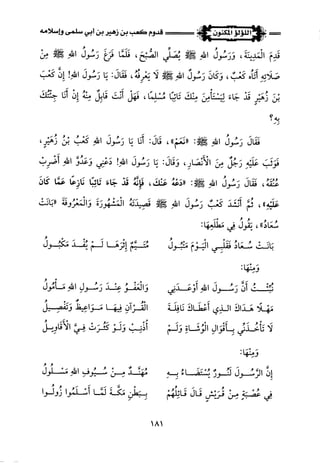 قدوم كعب بن زهير بن أبي سلمى وإسلامه
اللؤلؤ المكنون
قَدِمَ الْمَدِينَةَ، وَرَسُولُ اللهِ ﷺ يُصَلِّي الصُّبْحَ، فَلَمَّا فَرَغَ رَسُولُ اللهِ ﷺ مِنْ
صَلَاتِهِ أَتَاهُ كَعْبٌ، وَكَانَ رَسُولُ اللهِ ﷺ لَا يَعْرِفُهُ، فَقَالَ: يَا رَسُولَ اللهِ! إِنَّ كَعْبَ
بْنَ زُهَيْرٍ قَدْ جَاءَ لِيَسْتَأْمِنَ مِنْكَ تَائِبًا مُسْلِمًا، فَهَلْ أَنْتَ قَابِلٌ مِنْهُ إِنْ أَنَا جِئْتُكَ
بِهِ؟
فَقَالَ رَسُولُ اللهِ ﷺ: «نَعَمْ»، قَالَ: أَنَا يَا رَسُولَ اللهِ كَعْبُ بْنُ زُهَيْرٍ،
فَوَثَبَ عَلَيْهِ رَجُلٌ مِنَ الْأَنْصَارِ، وَقَالَ: يَا رَسُولَ اللهِ! دَعْنِي وَعَدُوَّ اللهِ أَضْرِبْ
عُنُقَهُ، فَقَالَ رَسُولُ اللهِ ﷺ: «دَعْهُ عَنْكَ، فَإِنَّهُ قَدْ جَاءَ تَائِبًا نَازِعًا عَمَّا كَانَ
عَلَيْهِ»، ثُمَّ أَنْشَدَ كَعْبٌ رَسُولَ اللهِ ﷺ قَصِيدَتَهُ الْمَشْهُورَةَ وَالْمَعْرُوفَةَ «بَانَتْ
سُعَادُ»، يَقُولُ فِي مَطْلَعِهَا:
بَانَتْ سُعَادُ فَقَلْبِي الْيَوْمَ مَتْبُولُ مُتَيَّمٌ إِثْرَهَا لَمْ يُفْدَ مَكْبُولُ
وَمِنْهَا:
نُبِّئْتُ أَنَّ رَسُولَ اللهِ أَوْعَدَنِي وَالْعَفْوُ عِنْدَ رَسُولِ اللهِ مَأْمُولُ
مَهْلًا هَدَاكَ الَّذِي أَعْطَاكَ نَافِلَةَ الْقُرْآنِ فِيهَا مَوَاعِيظٌ وَتَفْصِيلُ
لَا تَأْخُذَنِّي بِأَقْوَالِ الْوُشَاةِ وَلَمْ أُذْنِبْ وَلَوْ كَثُرَتْ فِيَّ الْأَقَاوِيلُ
وَمِنْهَا:
إِنَّ الرَّسُولَ لَنُورٌ يُسْتَضَاءُ بِهِ مُهَنَّدٌ مِنْ سُيُوفِ اللهِ مَسْلُولُ
فِي عُصْبَةٍ مِنْ قُرَيْشٍ قَالَ قَائِلُهُمْ بِبَطْنِ مَكَّةَ لَمَّا أَسْلَمُوا زُولُوا
١٨١